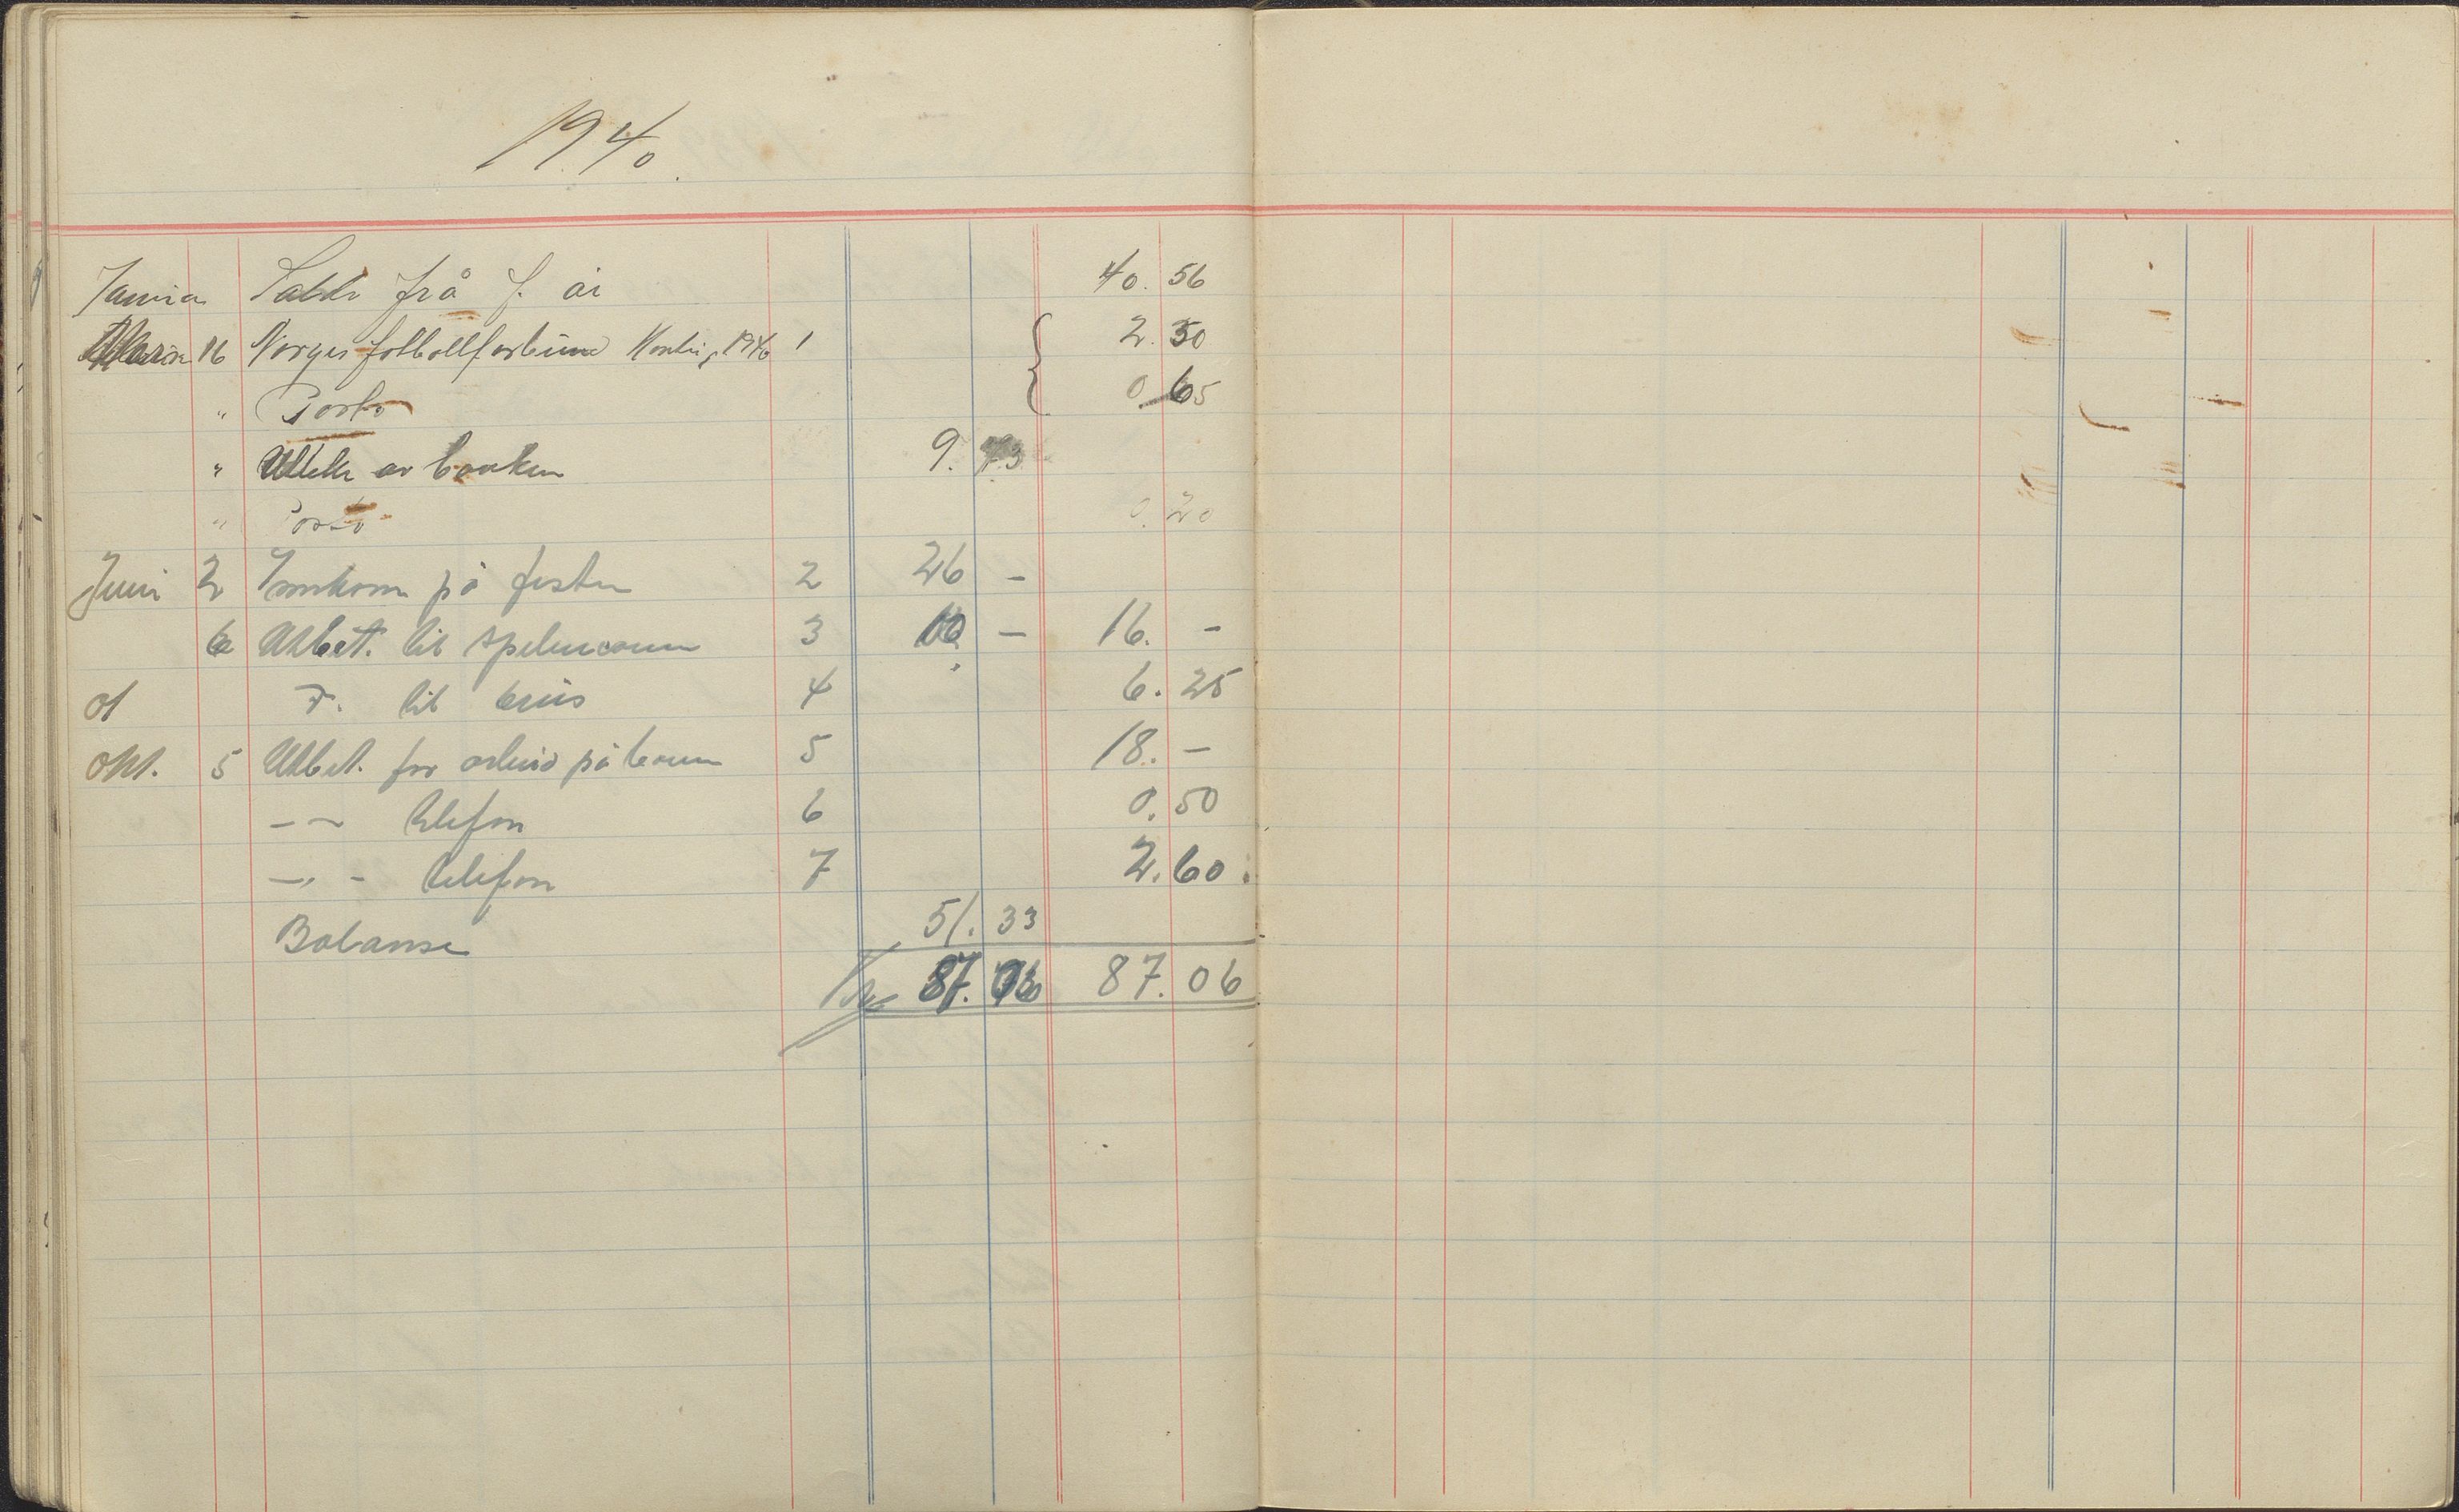 1940.
Januar Saldo frå f. år 40. 56
Mars 16 Norges fotballforbund Konting. 1940 1 2. 50
" Porto 0 65
" Utteke av banken 9. 73
" Porto 0. 20
Juni 2 Innkom på festen 2 26 -
6 Utbet. til spelemann 3 10. - 16. -
til brus 4 6. 25
Okt. 5 Utbet. for arbeid på banen 5 18. -
- - telefon 6 0. 50
- " - telefon 7 2. 60
Balanse 51. 33
Kr 87. 06 87. 06